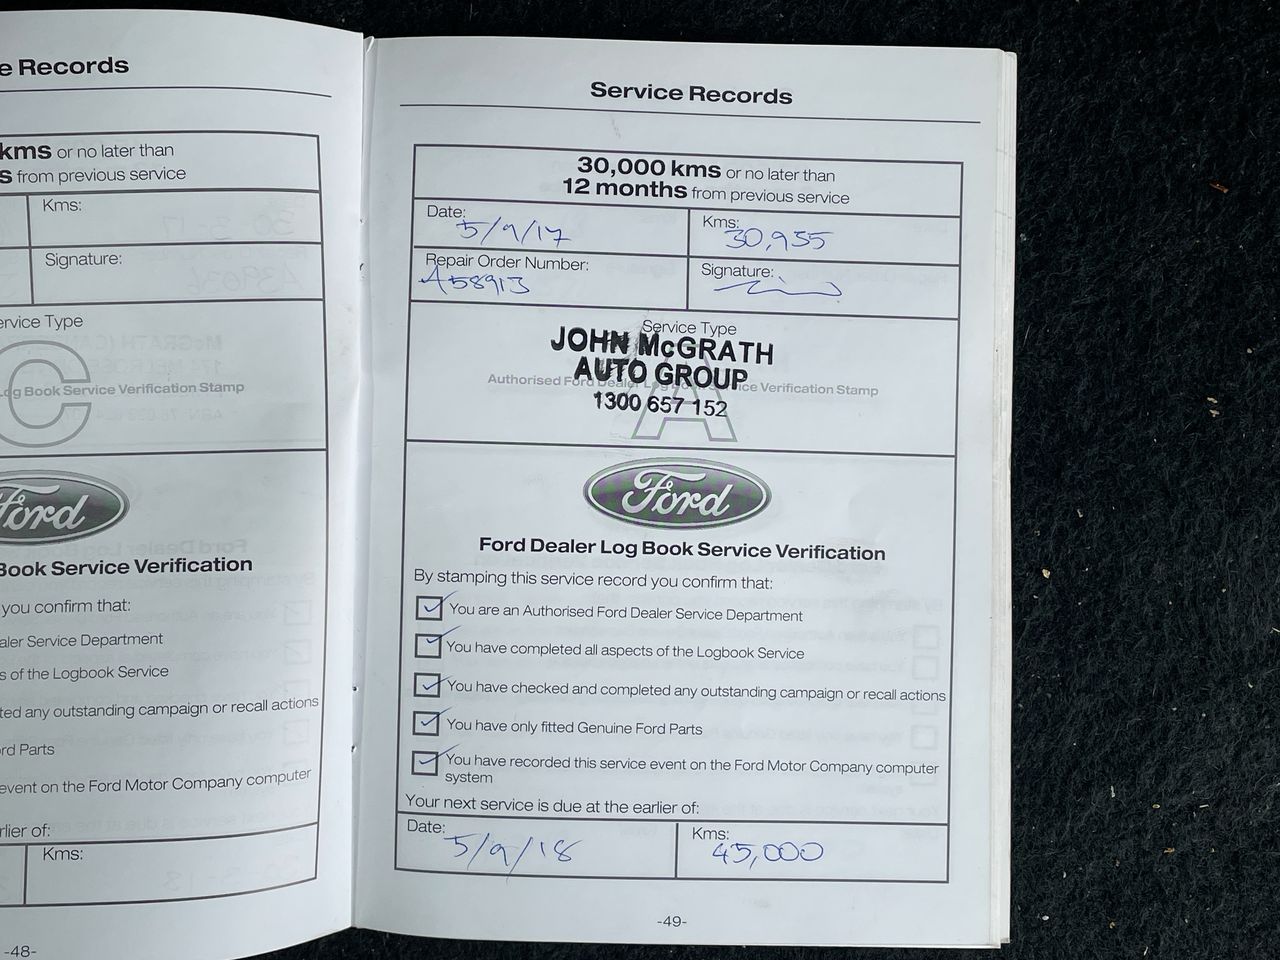 e Records
kms or no later than
s from previous service
Kms:
Signature:
ervice Type
C
Log Book Service Verification Stamp
Ford
Book Service Verification
you confirm that:
aler Service Department
s of the Logbook Service
ted any outstanding campaign or recall actions
rd Parts
event on the Ford Motor Company computer
rlier of:
Kms:
-48-
Service Records
30,000 kms or no later than
12 months from previous service
Date: 5/9/17
Kms: 30,935
Repair Order Number: A58913
Signature:
Service Type
JOHN McGRATH
AUTO GROUP
1300 657 152
A
Authorised Ford Dealer Log Book Service Verification Stamp
Ford
Ford Dealer Log Book Service Verification
By stamping this service record you confirm that:
You are an Authorised Ford Dealer Service Department
You have completed all aspects of the Logbook Service
You have checked and completed any outstanding campaign or recall actions
You have only fitted Genuine Ford Parts
You have recorded this service event on the Ford Motor Company computer
system
Your next service is due at the earlier of:
Date: 5/9/18
Kms: 45,000
-49-